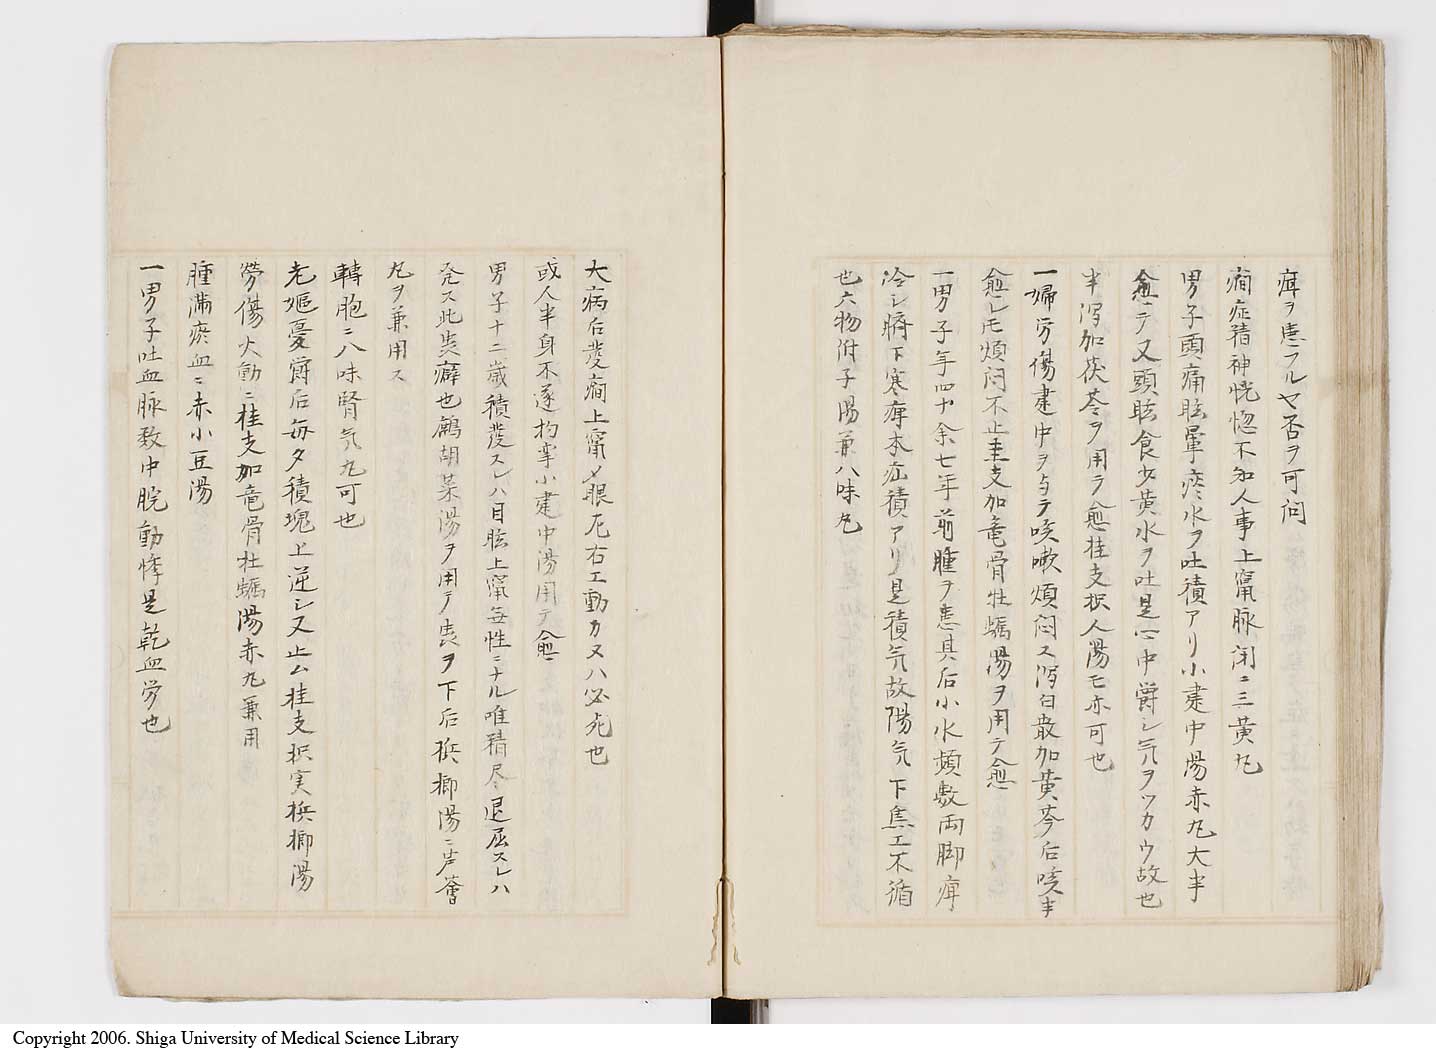 痺ヲ患フルヤ否ヲ可问
癇症精神恍惚不知人事上竄脉闭ニ三黄丸
男子頭痛眩暈痰水ヲ吐積アリ小建中湯赤丸大半
愈テ又頭眩食少黄水ヲ吐是心中欝シ気ヲツカウ故也
半瀉加茯苓ヲ用ラ愈桂支枳人湯モ亦可也
一婦労傷建中ヲ与テ咳嗽煩闷ス瀉白散加黄芩后咳半
愈シモ煩闷不止圭支加竜骨牡蛎湯ヲ用テ愈
一男子年四十余七年前腫ヲ患其后小水頻数両脚痺
冷シ臍下寒痺本疝積アリ是積気故陽気下焦エ不循
也六物附子湯兼八味丸
大病后發癇上竄メ眼左右エ動カ又ハ必死也
或人半身不遂拘挛小建中湯用テ愈
男子十二歳積發スレハ目眩上竄毎性ニナル唯精尽退屈スレハ
発ス此虫癖也鷓胡菜湯ヲ用テ虫ヲ下后梹榔湯ニ芦薈
丸ヲ兼用ス
轉胞ニ八味腎気丸可也
老嫗憂欝后毎夕積塊上逆シ又止ム桂支枳実梹榔湯
労傷火動ニ桂支加竜骨牡蛎湯赤丸兼用
腫満瘀血ニ赤小豆湯
一男子吐血脉数中脘動悸是乾血労也
Copyright 2006. Shiga University of Medical Science Library